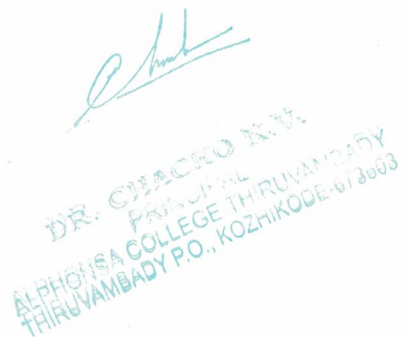 DR. CHACKO K.V.
PRINCIPAL
ALPHONSA COLLEGE THIRUVAMBADY
THIRUVAMBADY P.O., KOZHIKODE-673603